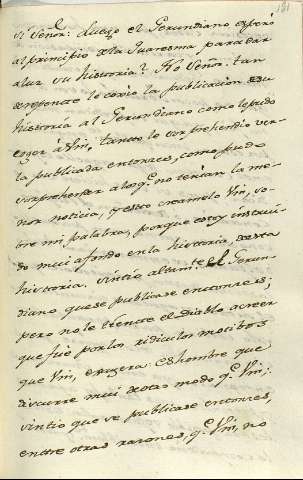 181
si Señor. Luego el Gerundiano esperó
al principio de la Quaresma para dar
a luz su historia? No Señor: tan
derepente le cogio la publicacion de su
historia al Gerundiano como le pudo
coger á Vm, tanto le sorprehendió ver-
la publicada entonces, como pudo
sorprehender a los q.e no tenian la me-
nor noticia, y esto creamelo Vm, so-
bre mi palabra, porque estoy instrui-
do mui afondo en la historia, de esta
historia. Sintio altam.te el Gerun-
diano que se publicase entonces;
pero no le tiente el diablo a creer
que fué por los ridiculos motibos
que Vm, es hombre que
discurre mui de otro modo q.e Vm;
sintio que se publicase entonces,
entre otras razones, q.e Vm, no